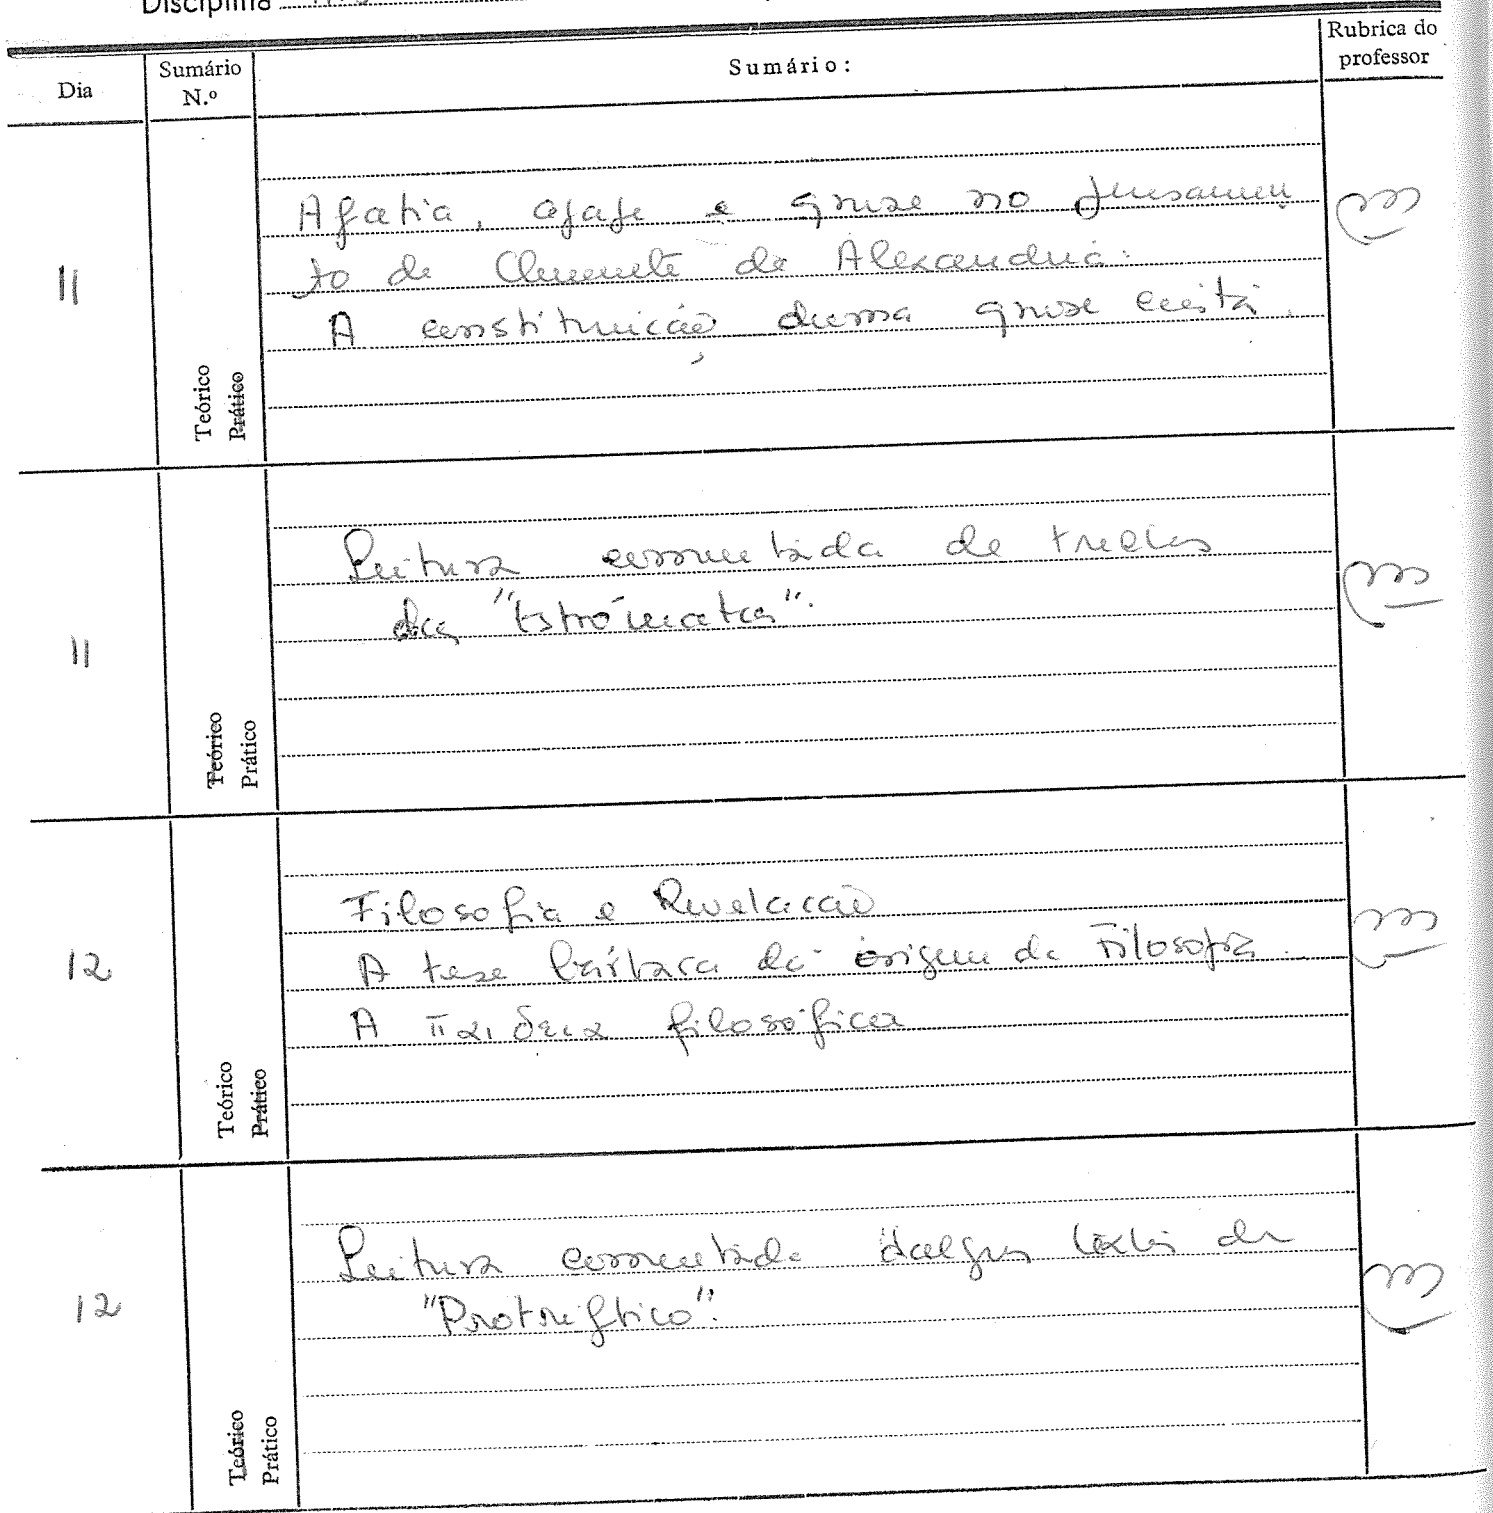 Disciplina
Dia
Sumário
N.º
Sumário:
Rubrica do
professor
11
Teórico
Prático
Apatia, agape e gnose no pensamen
to de Clemente de Alexandria.
A constituição duma gnose cristã.
11
Teórico
Prático
Leitura comentada de trechos
das "Estrómatas".
12
Teórico
Prático
Filosofia e Revelação
A tese bárbara da origem da Filosofia.
A παιδεια filosófica
12
Teórico
Prático
Leitura comentada dalguns textos do
"Protréptico".